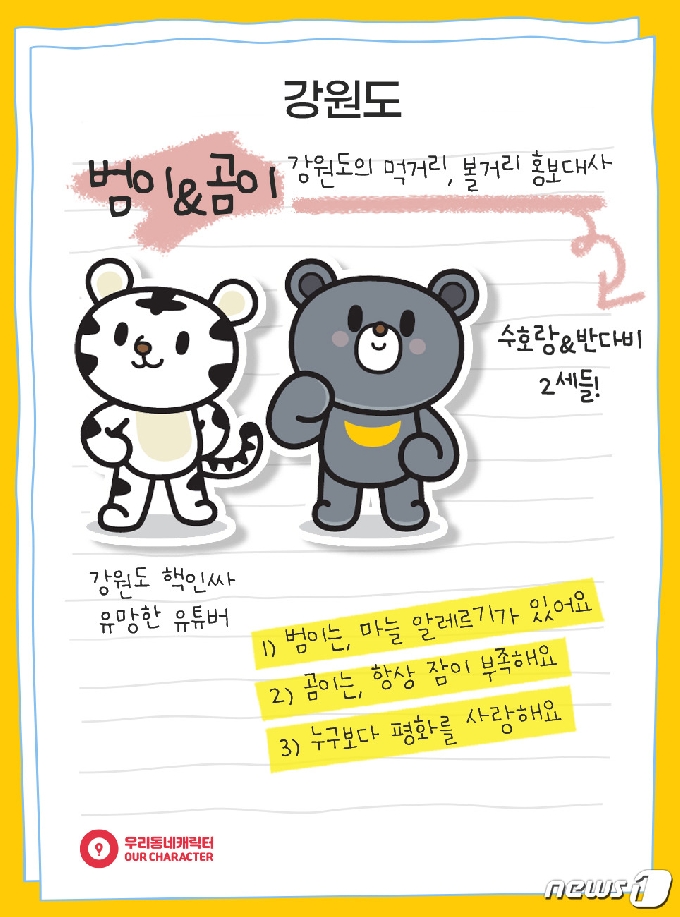 강원도
범이&곰이
강원도의 먹거리, 볼거리 홍보대사
수호랑&반다비
2세들!
강원도 핵인싸
유망한 유튜버
1) 범이는, 마늘 알레르기가 있어요
2) 곰이는, 항상 잠이 부족해요
3) 누구보다 평화를 사랑해요
우리동네캐릭터
OUR CHARACTER
news1